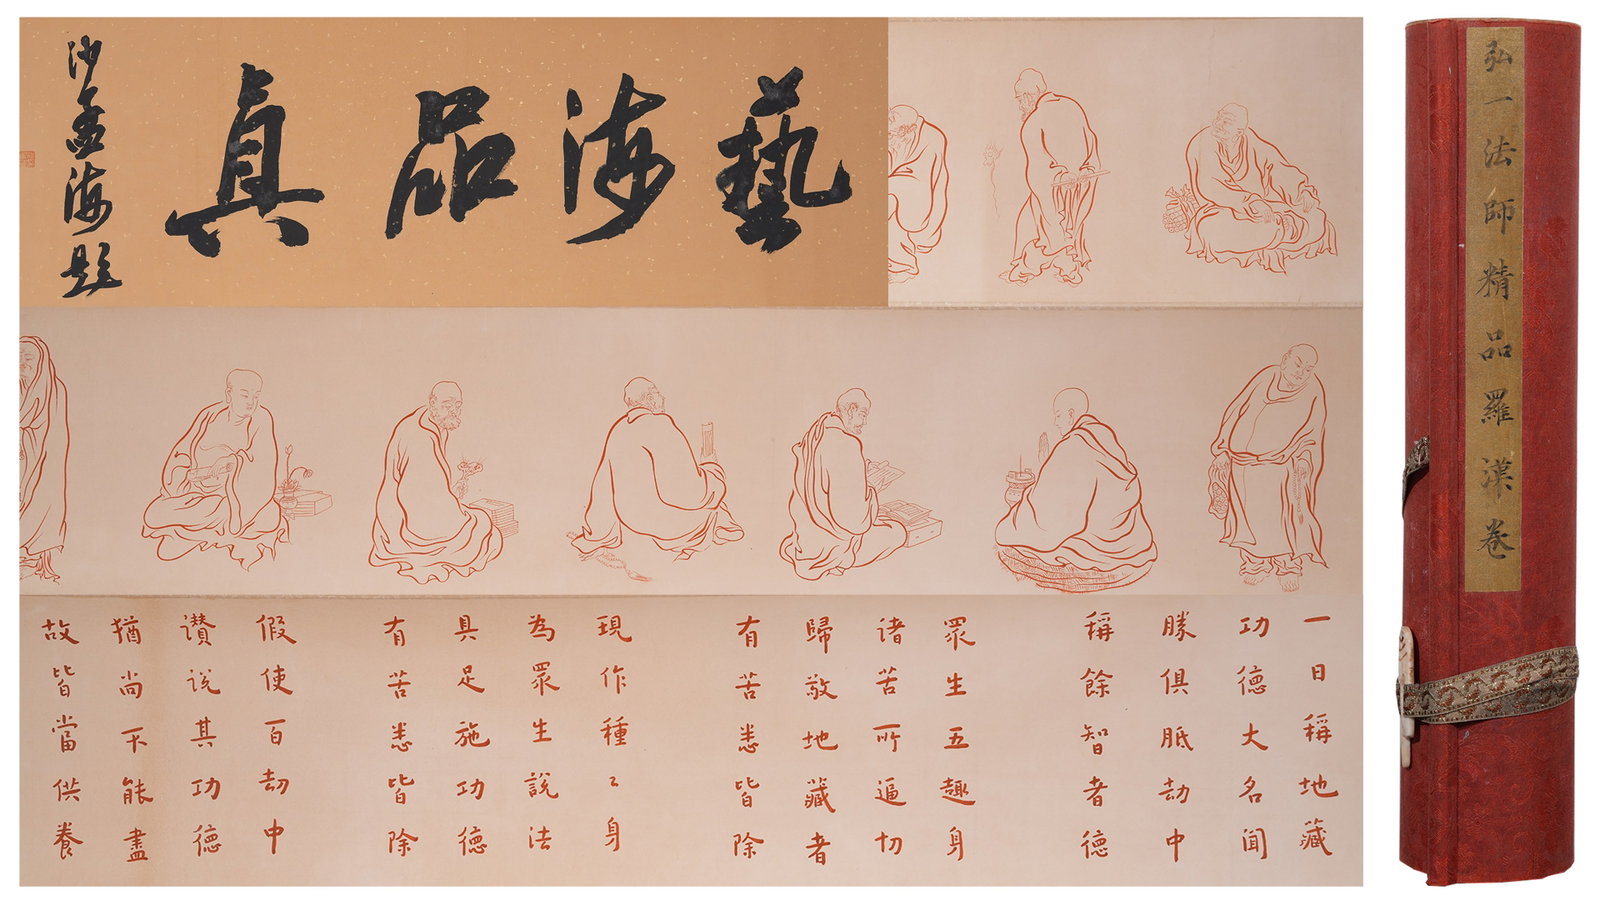 藝海品真
沙孟海題
一日稱地藏
功德大名聞
勝俱胝劫中
稱餘智者德
眾生五趣身
诸苦所逼切
歸敬地藏者
有苦悉皆除
現作種々身
為眾生說法
具足施功德
有苦悉皆除
假使百劫中
讚说其功德
猶尚不能盡
故皆當供養
弘一法師精品羅漢卷